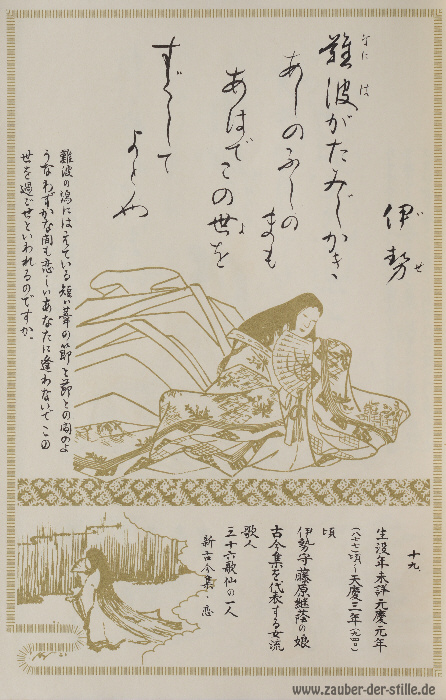 伊勢
難波がたみじかき
なには
あしのふしの
まも
あはでこの世を
よ
すぐして
よとや
難波の潟にはえている短い葦の節と節との間のよ
うなわずかな間も恋しいあなたに逢わないでこの
世を過ごせといわれるのですか。
十九
生没年未詳元慶元年
(八七七)頃〜天慶三年(九四〇)
頃
伊勢守藤原継蔭の娘
古今集を代表する女流
歌人
三十六歌仙の一人
新古今集・恋
www.zauber-der-stille.de